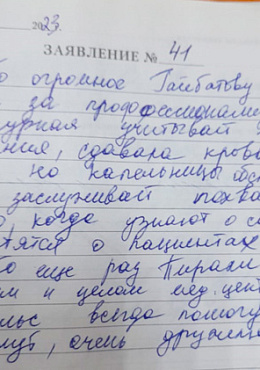 2023.
ЗАЯВЛЕНИЕ № 41
о огромное Гайбатову
за професионамм
учитывай
ния, сдавала кров
но капельницы
заслуживает похва
, когда узнают о с
тятся о пациентах
о еще раз
м и целом мед. цент
льс всегда помогу
, очень дружел